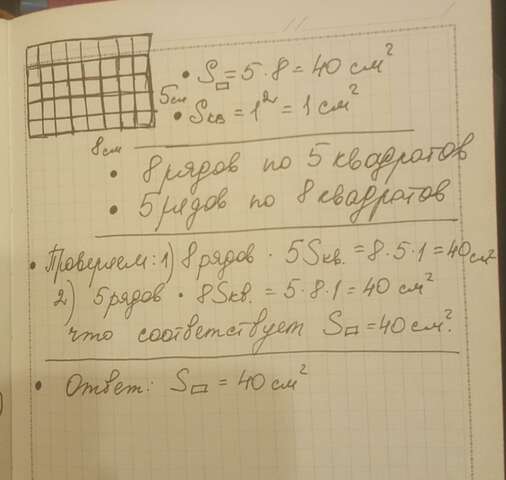 • S▭ = 5·8 = 40 см²
5см
• Sкв = 1² = 1 см²
8см
• 8 рядов по 5 квадратов
• 5 рядов по 8 квадратов
• Проверяем: 1) 8 рядов · 5Sкв. = 8·5·1 = 40 см²
2) 5 рядов · 8Sкв. = 5·8·1 = 40 см²
что соответствует S▭ = 40 см².
• Ответ: S▭ = 40 см²